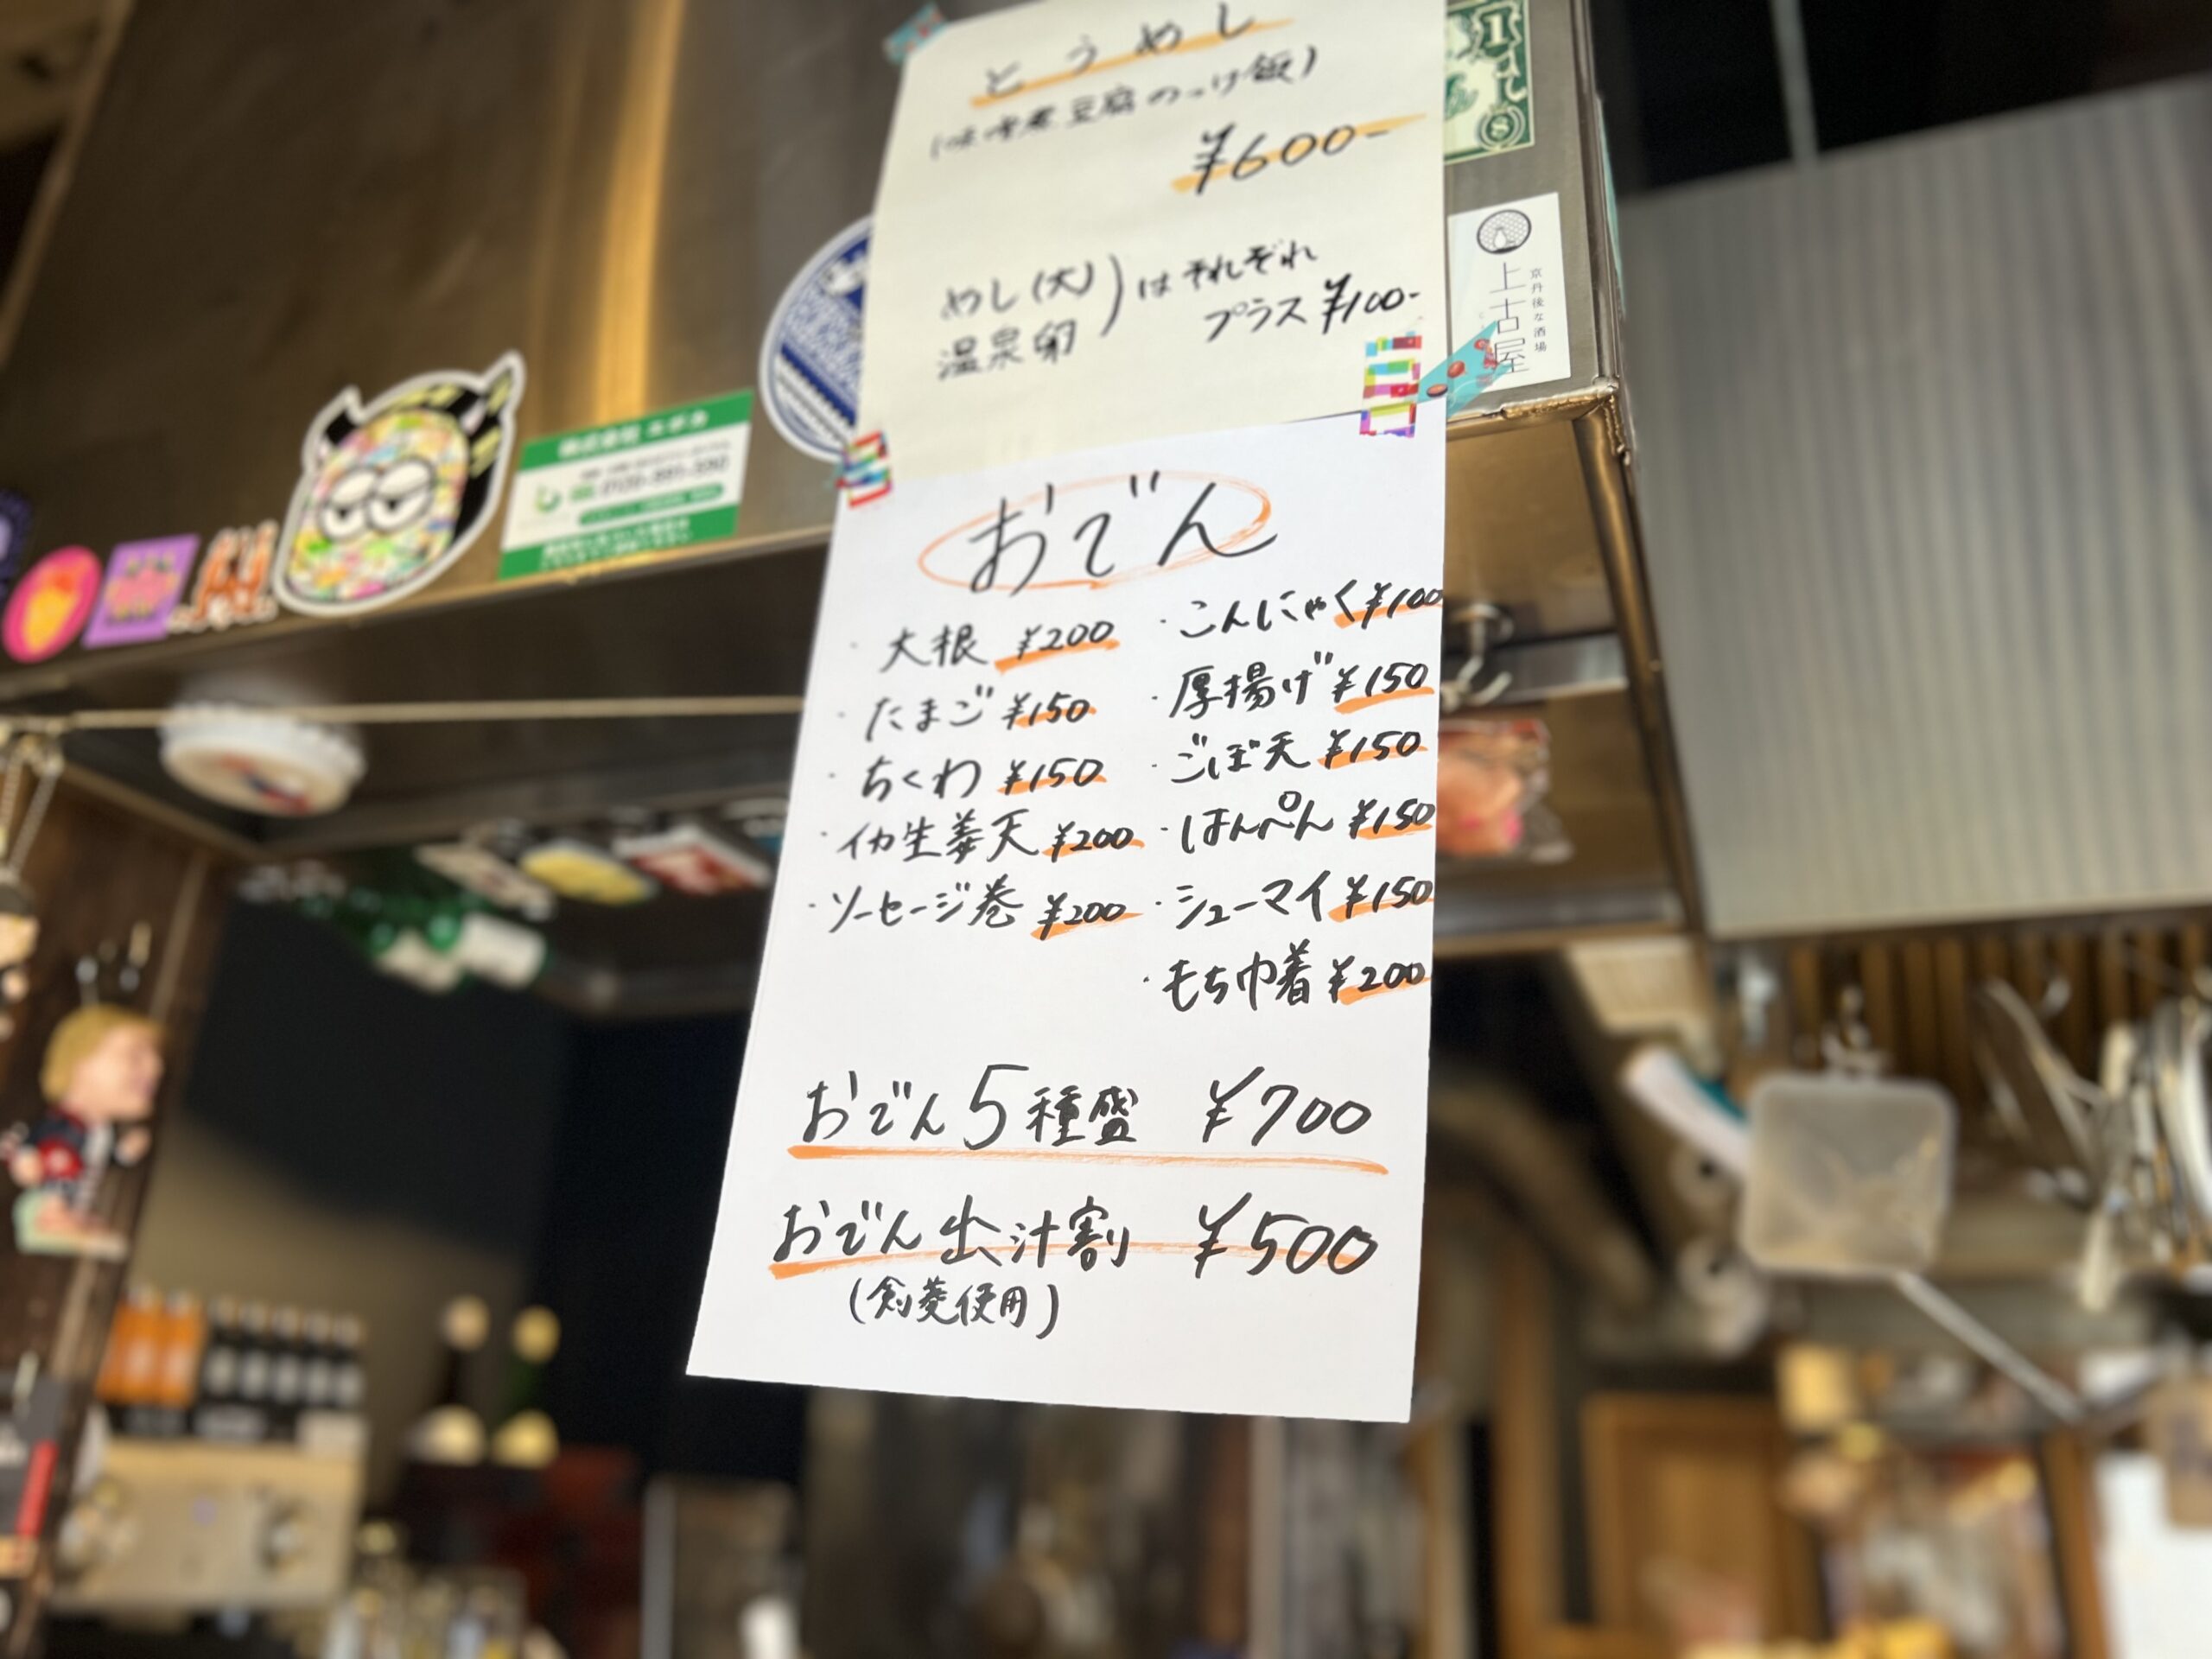 とうめし
(味噌煮豆腐のっけ飯)
¥600-
めし(大)
温泉卵
)はそれぞれ
プラス¥100-
おでん
・大根 ¥200
・たまご ¥150
・ちくわ ¥150
・イカ生姜天 ¥200
・ソーセージ巻 ¥200
・こんにゃく ¥100
・厚揚げ ¥150
・ごぼ天 ¥150
・はんぺん ¥150
・シューマイ ¥150
・もち巾着 ¥200
おでん5種盛 ¥700
おでん出汁割 ¥500
(剣菱使用)
京丹後な酒場
上古屋
1